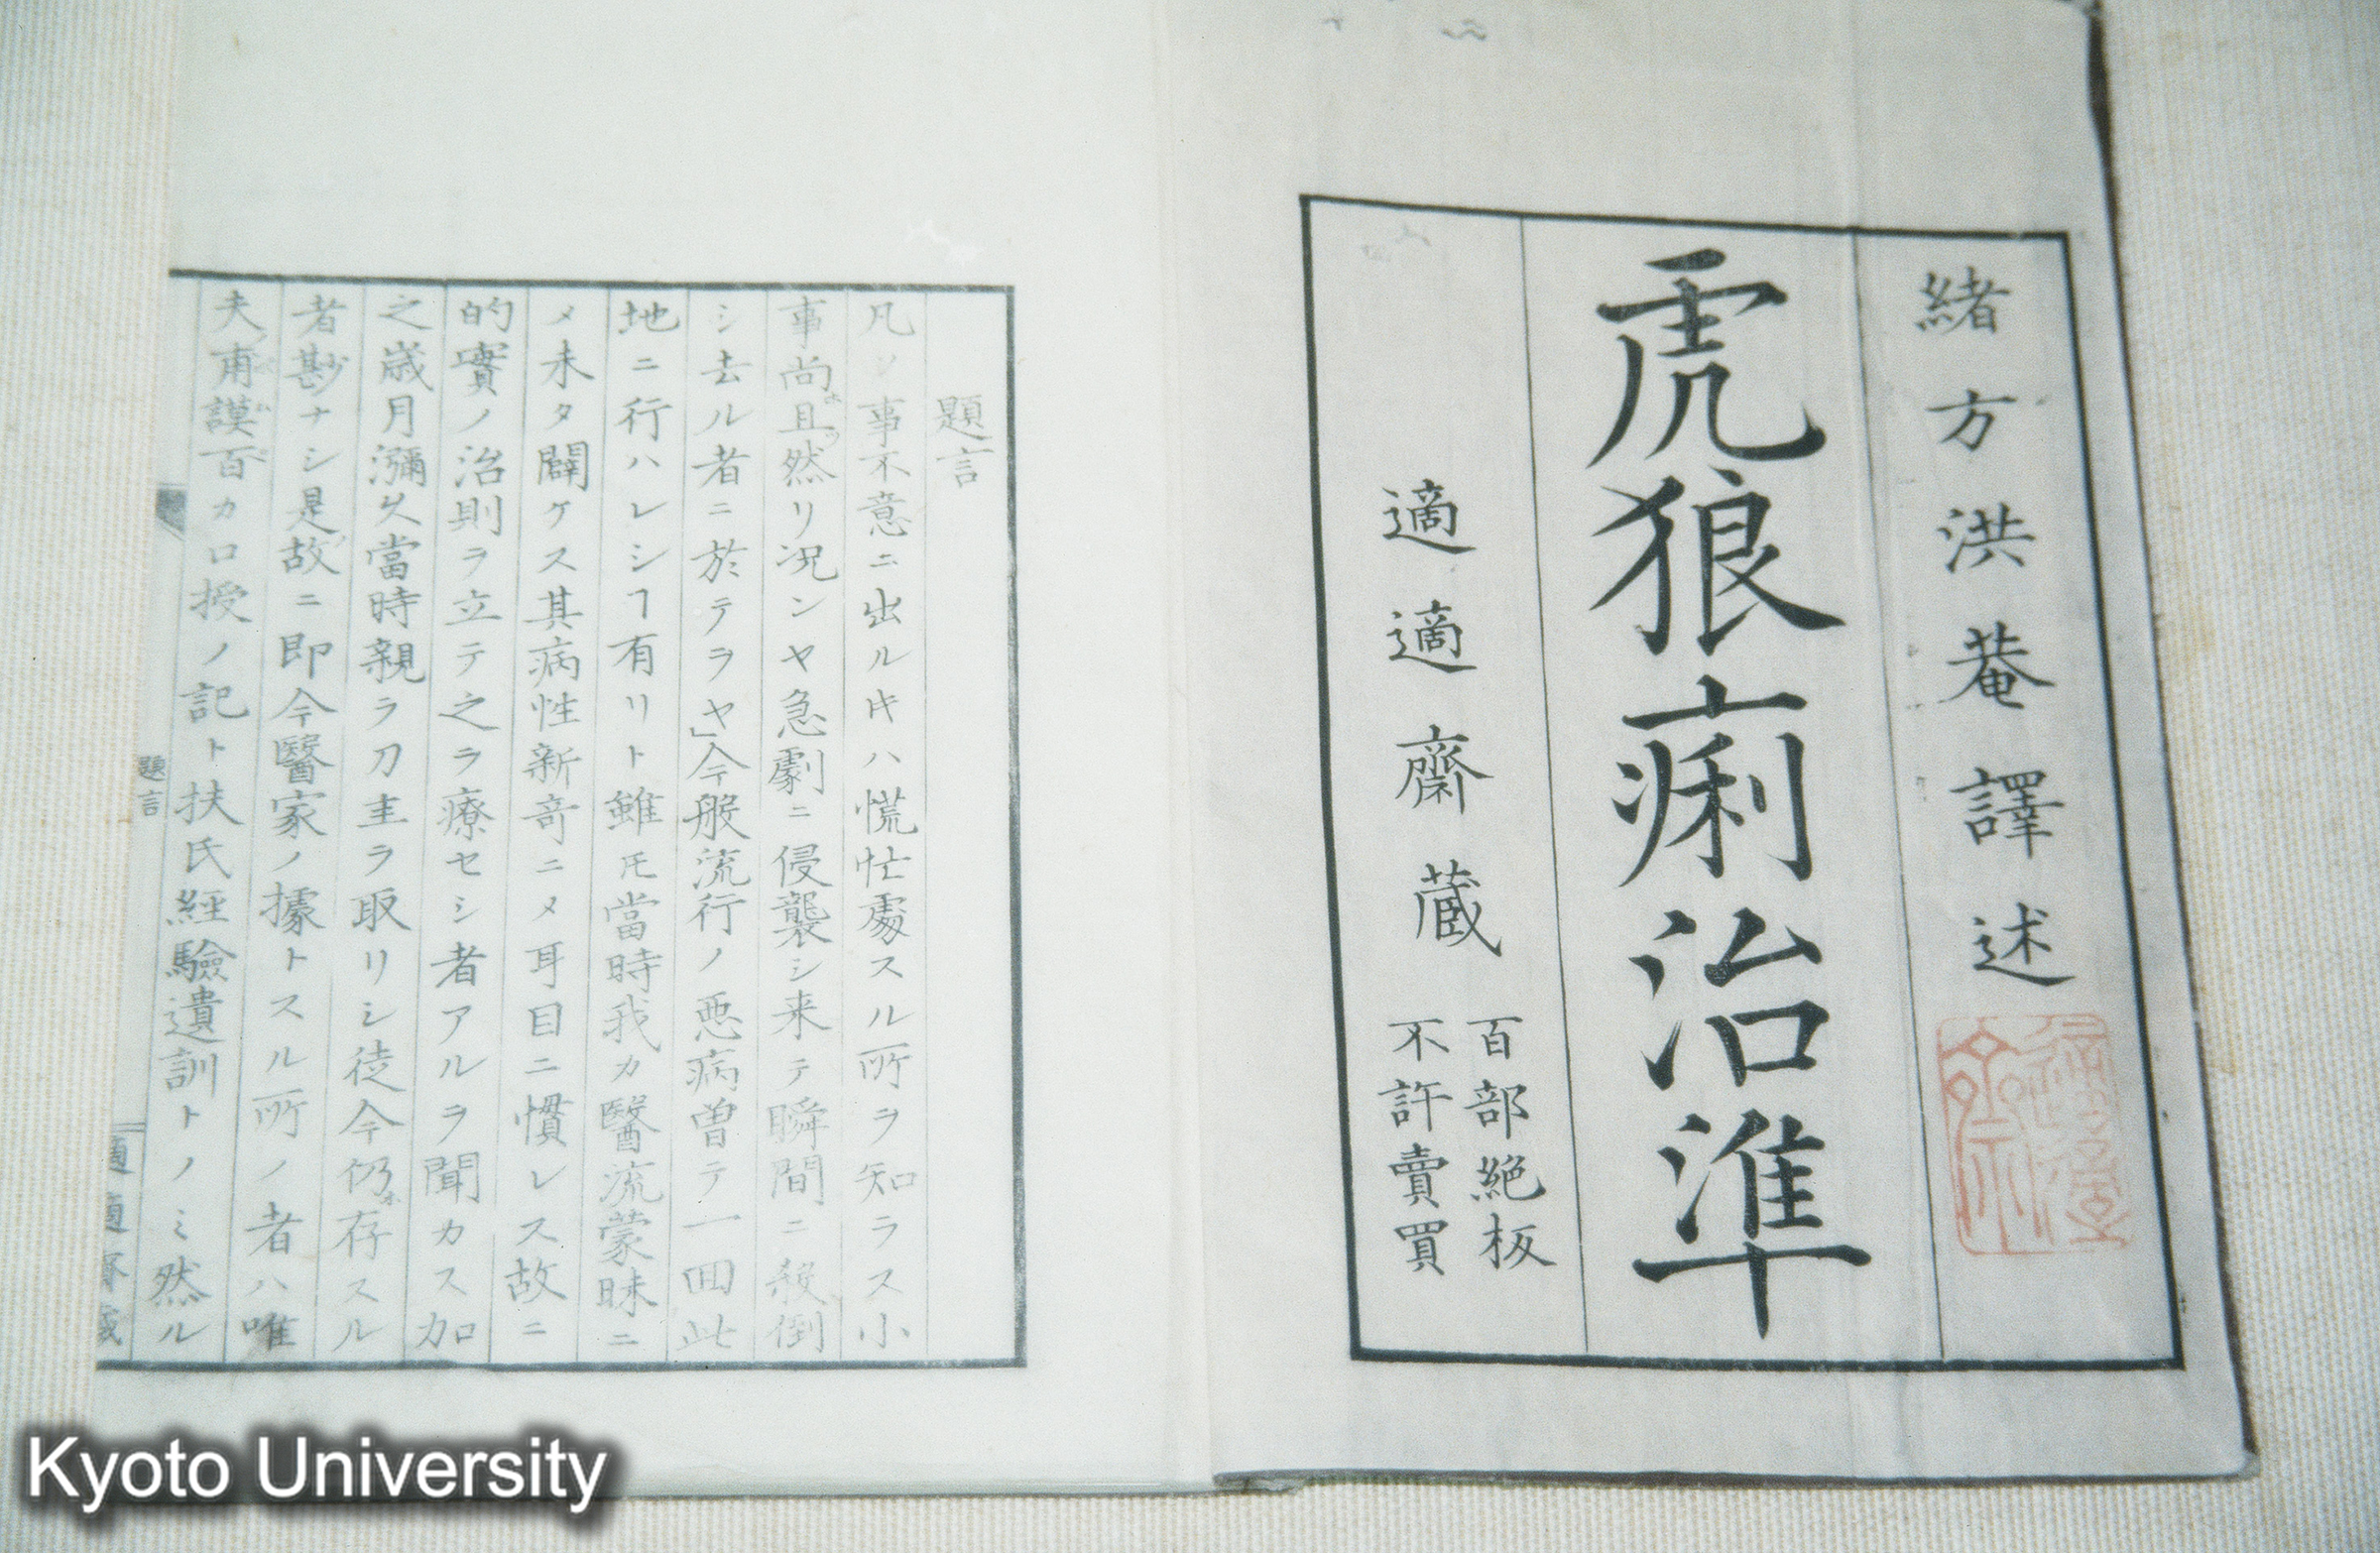 緒方洪菴譯述
虎狼痢治準
適適齋蔵
百部絶板
不許賣買
題言
凡ソ事不意ニ出ルキハ慌忙處スル所ヲ知ラス小
事尚且然リ況ンヤ急劇ニ侵襲シ来テ瞬間ニ殺倒
シ去ル者ニ於テヲヤ」今般流行ノ悪病曽テ一回此
地ニ行ハレシヿ有リト雖𪜈當時我カ醫流蒙昧ニ
メ未タ闢ケス其病性新奇ニメ耳目ニ慣レス故ニ
的實ノ治則ヲ立テ之ヲ療セシ者アルヲ聞カス加
之歳月瀰久當時親ラ刀圭ヲ取リシ徒今仍存スル
者尠ナシ是故ニ即今醫家ノ據トスル所ノ者ハ唯
夫甫謨百カ口授ノ記ト扶氏經驗遺訓トノミ然ル
題言
適適齋蔵
Kyoto University